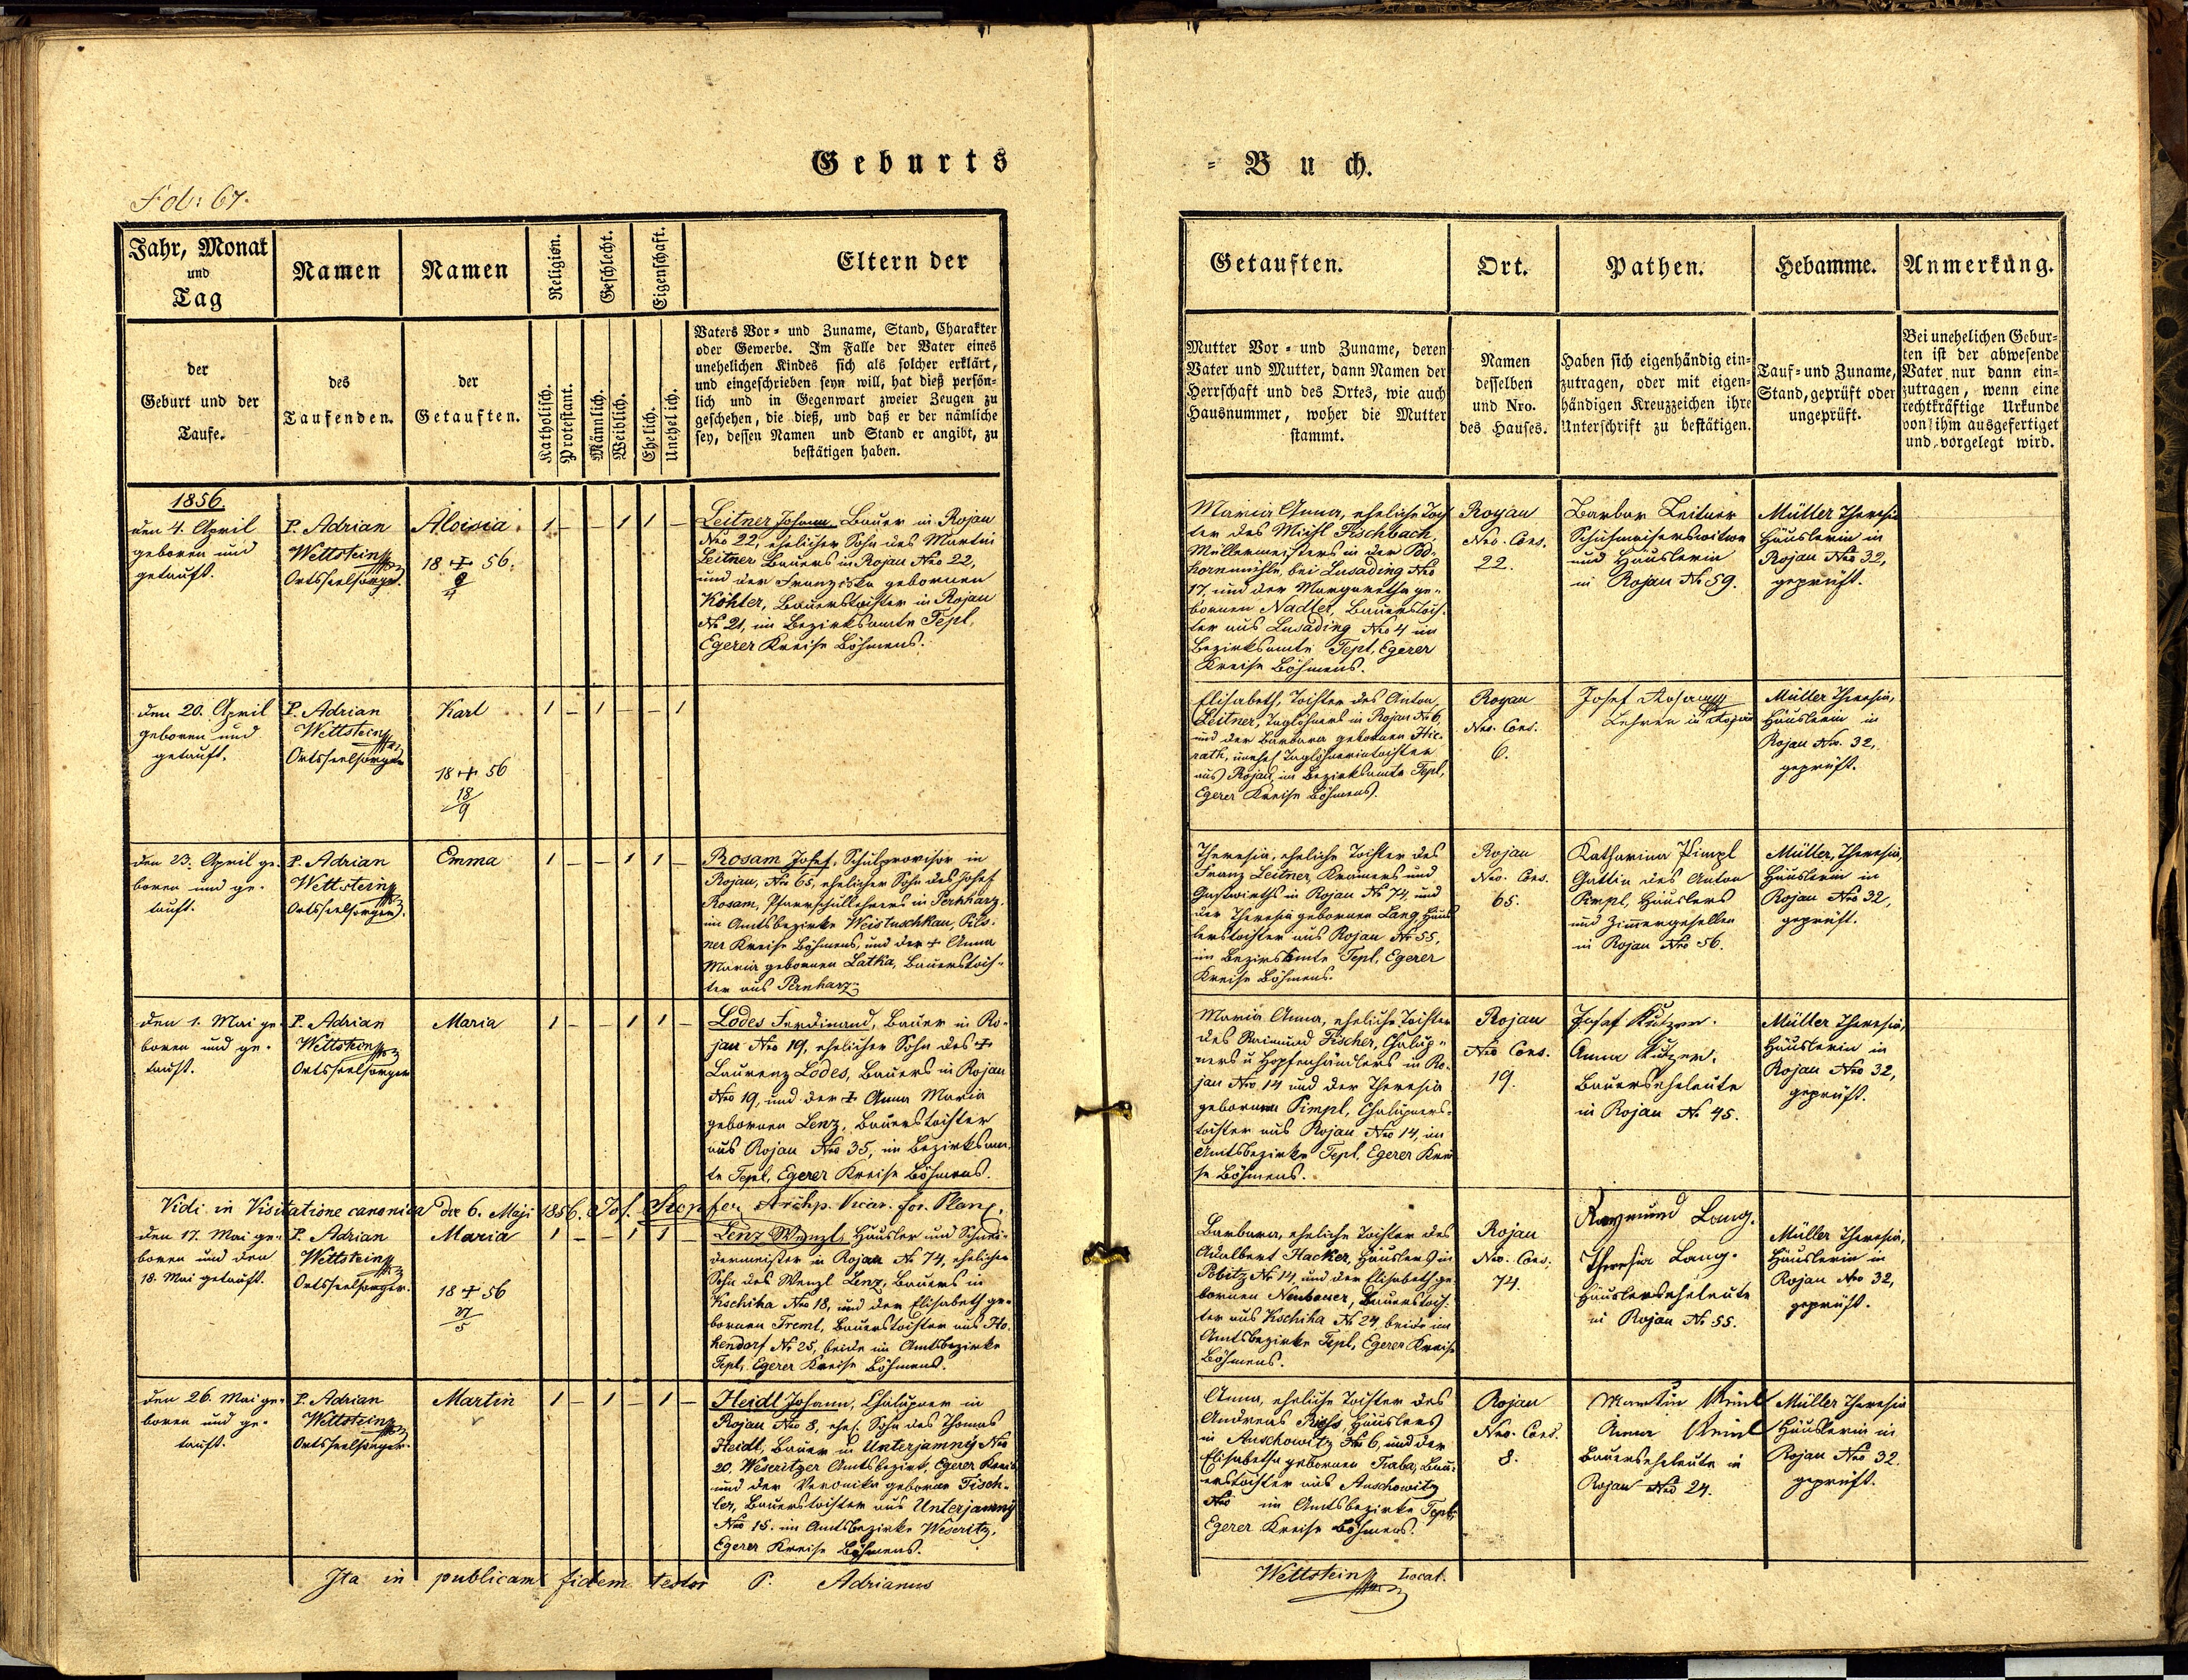 Geburts
= Buch.
Fol: 67.
Jahr, Monat
und
Tag
Namen
Namen
Religion.
Geschlecht.
Eigenschaft.
Eltern der
der
Geburt und der
Taufe.
des
Taufenden.
der
Getauften.
Katholisch.
Protestant.
Männlich.
Weiblich.
Ehelich.
Unehelich.
Vaters Vor- und Zuname, Stand, Charakter
oder Gewerbe. Im Falle der Vater eines
unehelichen Kindes sich als solcher erklärt,
und eingeschrieben seyn will, hat dieß persön-
lich und in Gegenwart zweier Zeugen zu
geschehen, die dieß, und daß er der nämliche
sey, dessen Namen und Stand er angibt, zu
bestätigen haben.
Getauften.
Ort.
Pathen.
Hebamme.
Anmerkung.
Mutter Vor- und Zuname, deren
Vater und Mutter, dann Namen der
Herrschaft und des Ortes, wie auch
Hausnummer, woher die Mutter
stammt.
Namen
desselben
und Nro.
des Hauses.
Haben sich eigenhändig ein-
zutragen, oder mit eigen-
händigen Kreuzzeichen ihre
Unterschrift zu bestätigen.
Tauf- und Zuname,
Stand, geprüft oder
ungeprüft.
Bei unehelichen Gebur-
ten ist der abwesende
Vater nur dann ein-
zutragen, wenn eine
rechtkräftige Urkunde
von ihm ausgefertiget
und vorgelegt wird.
1856.
den 4. April
geboren und
getauft.
P. Adrian
Wettstein
Ortsseelsorger.
Aloisia.
18 + 56.
1 – – 1 1 –
Leitner Johann Bauer in Rojau
Nro 22, ehelicher Sohn des Martin
Leitner Bauers in Rojau Nro 22,
und der Franziska gebornen
Köhler, Bauerstochter in Rojau
No 21, im Bezirksamte Tepl,
Egerer Kreise Böhmens.
Maria Anna, eheliche Toch
ter des Michl Fischbach,
Müllermeisters in der Pod-
hornmühle, bei Lusading Nro
17, und der Margaretha ge-
bornen Nadler, Bauerstoch-
ter aus Lusading Nro 4 im
Bezirksamte Tepl, Egerer
Kreise Böhmens.
Rojau
Nro. Cons.
22.
Barbar Leitner
Schuhmacherswitwe
und Häuslerin
in Rojau No 59.
Müller Theresia
Häuslerin in
Rojau Nro 32,
geprüft.
den 20. April
geboren und
getauft.
P. Adrian
Wettstein
Ortsseelsorger
Karl
18 + 56
18/9
1 – 1 – – 1
Elisabeth, Tochter des Anton
Leitner, Taglöhners in Rojau No 6,
und der Barbara gebornen Hie-
rath, unehel Taglöhnerintochter
aus Rojau, im Bezirksamte Tepl,
Egerer Kreise Böhmens.
Rojau
Nro. Cons.
6.
Josef Rosam
Lehrer in Rojau
Müller Theresia,
Häuslerin in
Rojau Nro. 32,
geprüft.
den 23. April ge-
boren und ge-
tauft.
P. Adrian
Wettstein
Ortsseelsorger.
Emma
1 – – 1 1 –
Rosam Josef, Schulprovisor in
Rojau, Nro 65, ehelicher Sohn des Josef
Rosam, Pfarrschullehrers in Pernharz
im Amtsbezirke Weistuschkau, Pils-
ner Kreise Böhmens, und der + Anna
Maria gebornen Latka, Bauerstoch-
ter aus Pernharz.
Theresia, eheliche Tochter des
Franz Leitner, Krämers und
Gastwirths in Rojau No 74, und
der Theresia gebornen Lang, Häus
lerstochter aus Rojau No 55,
im Bezirksamte Tepl, Egerer
Kreise Böhmens.
Rojau
Nro. Cons.
65.
Katharina Pimpl
Gattin des Anton
Pimpl, Häuslers
und Zimmergesellen
in Rojau Nro 56.
Müller, Theresia,
Häuslerin in
Rojau Nro 32,
geprüft.
den 1. Mai ge-
boren und ge-
tauft.
P. Adrian
Wettstein
Ortsseelsorger
Maria
1 – – 1 1 –
Lodes Ferdinand, Bauer in Ro-
jau Nro 19, ehelicher Sohn des +
Laurenz Lodes, Bauers in Rojau
Nro 19, und der + Anna Maria
gebornen Lenz, Bauerstochter
aus Rojau Nro 35, im Bezirksam-
te Tepl, Egerer Kreise Böhmens.
Maria Anna, eheliche Tochter
des Raimund Fischer, Chalup-
ners u Hopfenhändlers in Ro-
jau Nro. 14 und der Theresia
gebornen Pimpl, Chalupners-
tochter aus Rojau Nro 14, im
Amtsbezirke Tepl, Egerer Krei
se Böhmens.
Rojau
Nro Cons.
19.
Josef Kutzer.
Anna Kutzer.
Bauerseheleute
in Rojau No 45.
Müller Theresia,
Häuslerin in
Rojau Nro 32,
geprüft.
Vidi in Visitatione canonica die 6. Maji 1856. Jos. Stopfer Archp. Vicar. for. Plan.
den 17. Mai ge-
boren und den
18. Mai getauft.
P. Adrian
Wettstein
Ortsseelsorger.
Maria
18 + 56
27/5
1 – – 1 1 –
Lenz Wenzl, Häusler und Schnei-
dermeister in Rojau No 74, ehelicher
Sohn des Wenzl Lenz, Bauers in
Kschiha Nro 18, und der Elisabeth ge-
bornen Treml, Bauerstochter aus Ho-
hendorf No 25, beide im Amtsbezirke
Tepl, Egerer Kreise Böhmens.
Barbara, eheliche Tochter des
Adalbert Hacker, Häuslers in
Pobitz No 14, und der Elisabeth ge-
bornen Neubauer, Bauerstoch-
ter aus Kschiha No 24, beide im
Amtsbezirke Tepl, Egerer Kreise
Böhmens.
Rojau
Nro. Cons.
74.
Raymund Lang.
Theresia Lang.
Häuslerseheleute
in Rojau No 55.
Müller Theresia,
Häuslerin in
Rojau Nro 32,
geprüft.
den 26. Mai ge-
boren und ge-
tauft.
P. Adrian
Wettstein
Ortsseelsorger.
Martin
1 – 1 – 1 –
Heidl Johann, Chalupner in
Rojau Nro 8, ehel. Sohn des Thomas
Heidl, Bauer in Unterjamny Nro
20, Weseritzer Amtsbezirk, Egerer Kreis
und der Veronika geborne Tisch-
ler, Bauerstochter aus Unterjamny
Nro 15. im Amtsbezirke Weseritz,
Egerer Kreise Böhmens.
Anna, eheliche Tochter des
Andreas Häuslers
in Auschowitz No 6, und der
Elisabetha gebornen Traba, Bau-
erstochter aus Auschowitz
Nro im Amtsbezirke Tepl,
Egerer Kreise Böhmens.
Rojau
Nro. Cons.
8.
Martin
Anna
Bauerseheleute in
Rojau Nro 24.
Müller Theresia
Häuslerin in
Rojau Nro 32.
geprüft.
Ita in publicam fidem testor P. Adrianus
Wettstein Local.